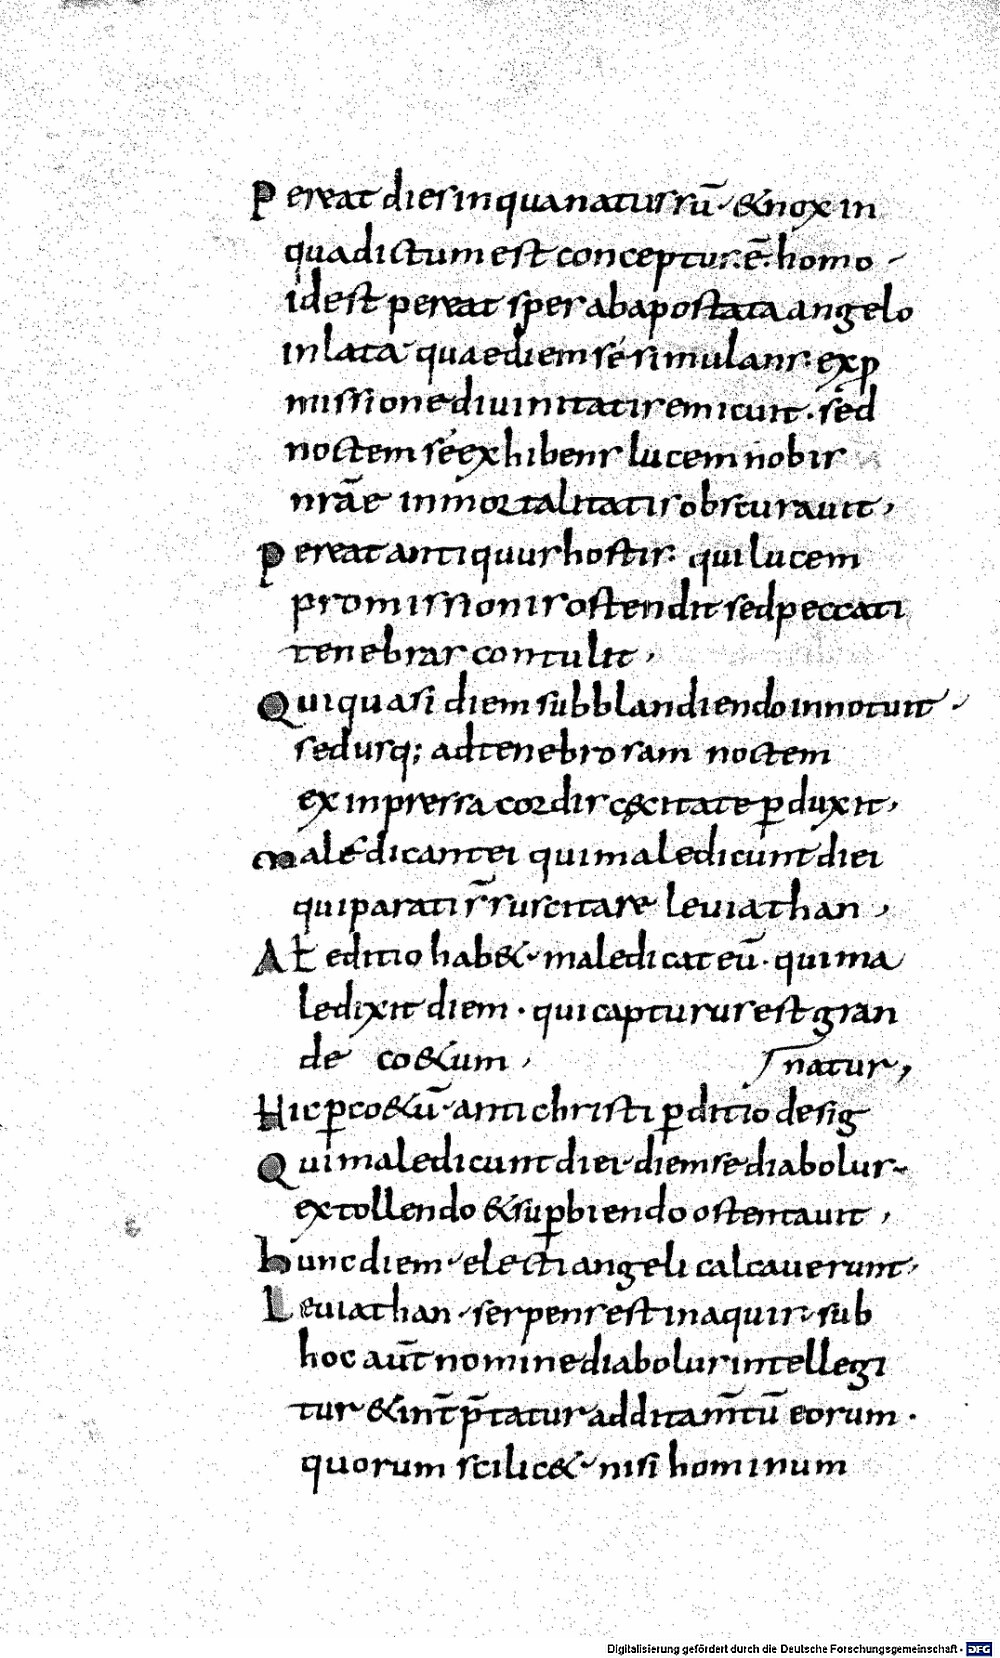 Pereat dies in qua natus sū · & nox in
qua dictum est conceptus · ē · homo
id est pereat spes ab apostata angelo
inlata quae diem se simulans · ex p
missione diuinitatis emicuit · sed
noctem se exhibens lucem nobis
nrāe inmortalitatis obscurauit,
Pereat antiquus hostis · qui lucem
promissionis ostendit sed peccati
tenebras contulit,
Qui quasi diem sub blandiendo innotuit ·
sed usq; ad tenebrosam noctem
ex inpressa cordis cęcitate p duxit,
Maledicant ei qui maledicunt diei
qui parati s̄ suscitare leuiathan,
Aƚ editio hab& · maledicat eū · qui ma
ledixit diem · qui capturus est gran
de co&um, natur,
Hic p co&ū · antichristi pditio desig
Qui maledicunt diei · diem se diabolus
extollendo & supbiendo ostentauit,
hunc diem · electi angeli calcauerunt,
Leuiathan · serpens est in aquis · sub
hoc aūt nomine diabolus intellegi
tur & int̄p̄tatur additam̄tū eorum ·
quorum scilic& · nisi hominum
Digitalisierung gefördert durch die Deutsche Forschungsgemeinschaft - DFG